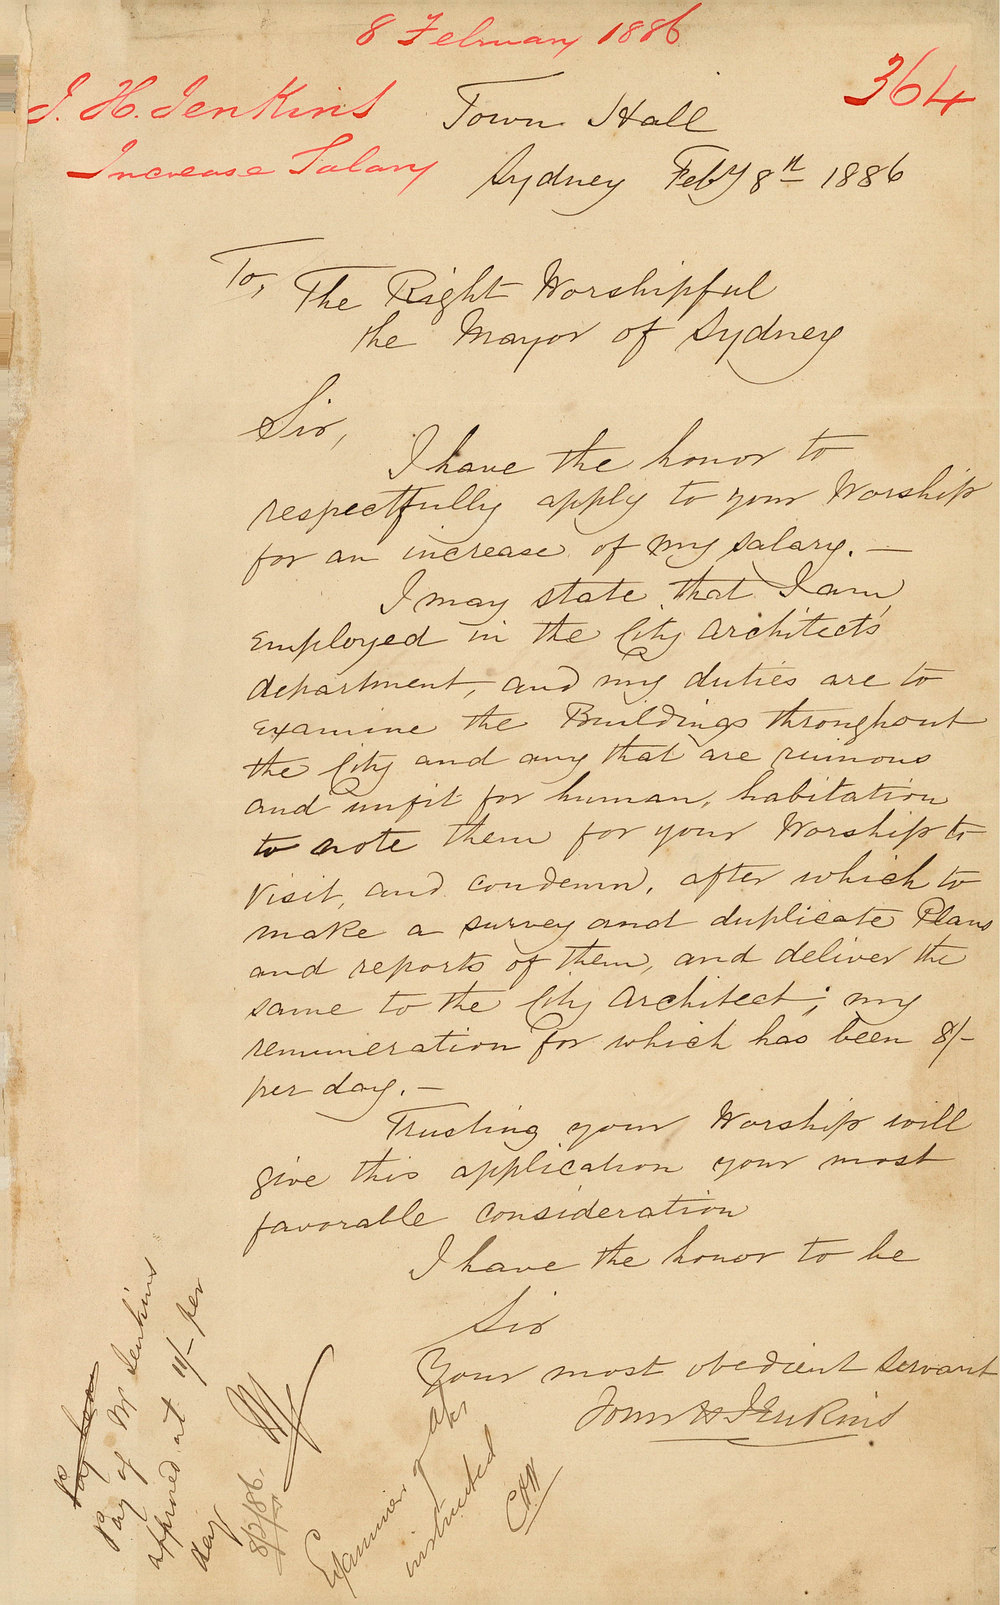 8 February 1886
364
J. H. Jenkins
Increase Salary
Town Hall
Sydney Feby 8th 1886
To, The Right Worshipful
the Mayor of Sydney
Sir,
I have the honor to
respectfully apply to your Worship
for an increase of my salary. —
I may state that I am
employed in the City Architect's
department, and my duties are to
examine the Buildings throughout
the City and any that are ruinous
and unfit for human, habitation
to note them for your Worship to
visit, and condemn, after which to
make a survey and duplicate Plans
and reports of them, and deliver the
same to the City Architect; my
remuneration for which has been 8/-
per day. —
Trusting your Worship will
give this application your most
favorable consideration
I have the honor to be
Sir
Your most obedient servant
John H Jenkins
Pay of Mr Jenkins
approved at 11/- per
day
8/2/86.
Examiner of a/cs
instructed
CHW